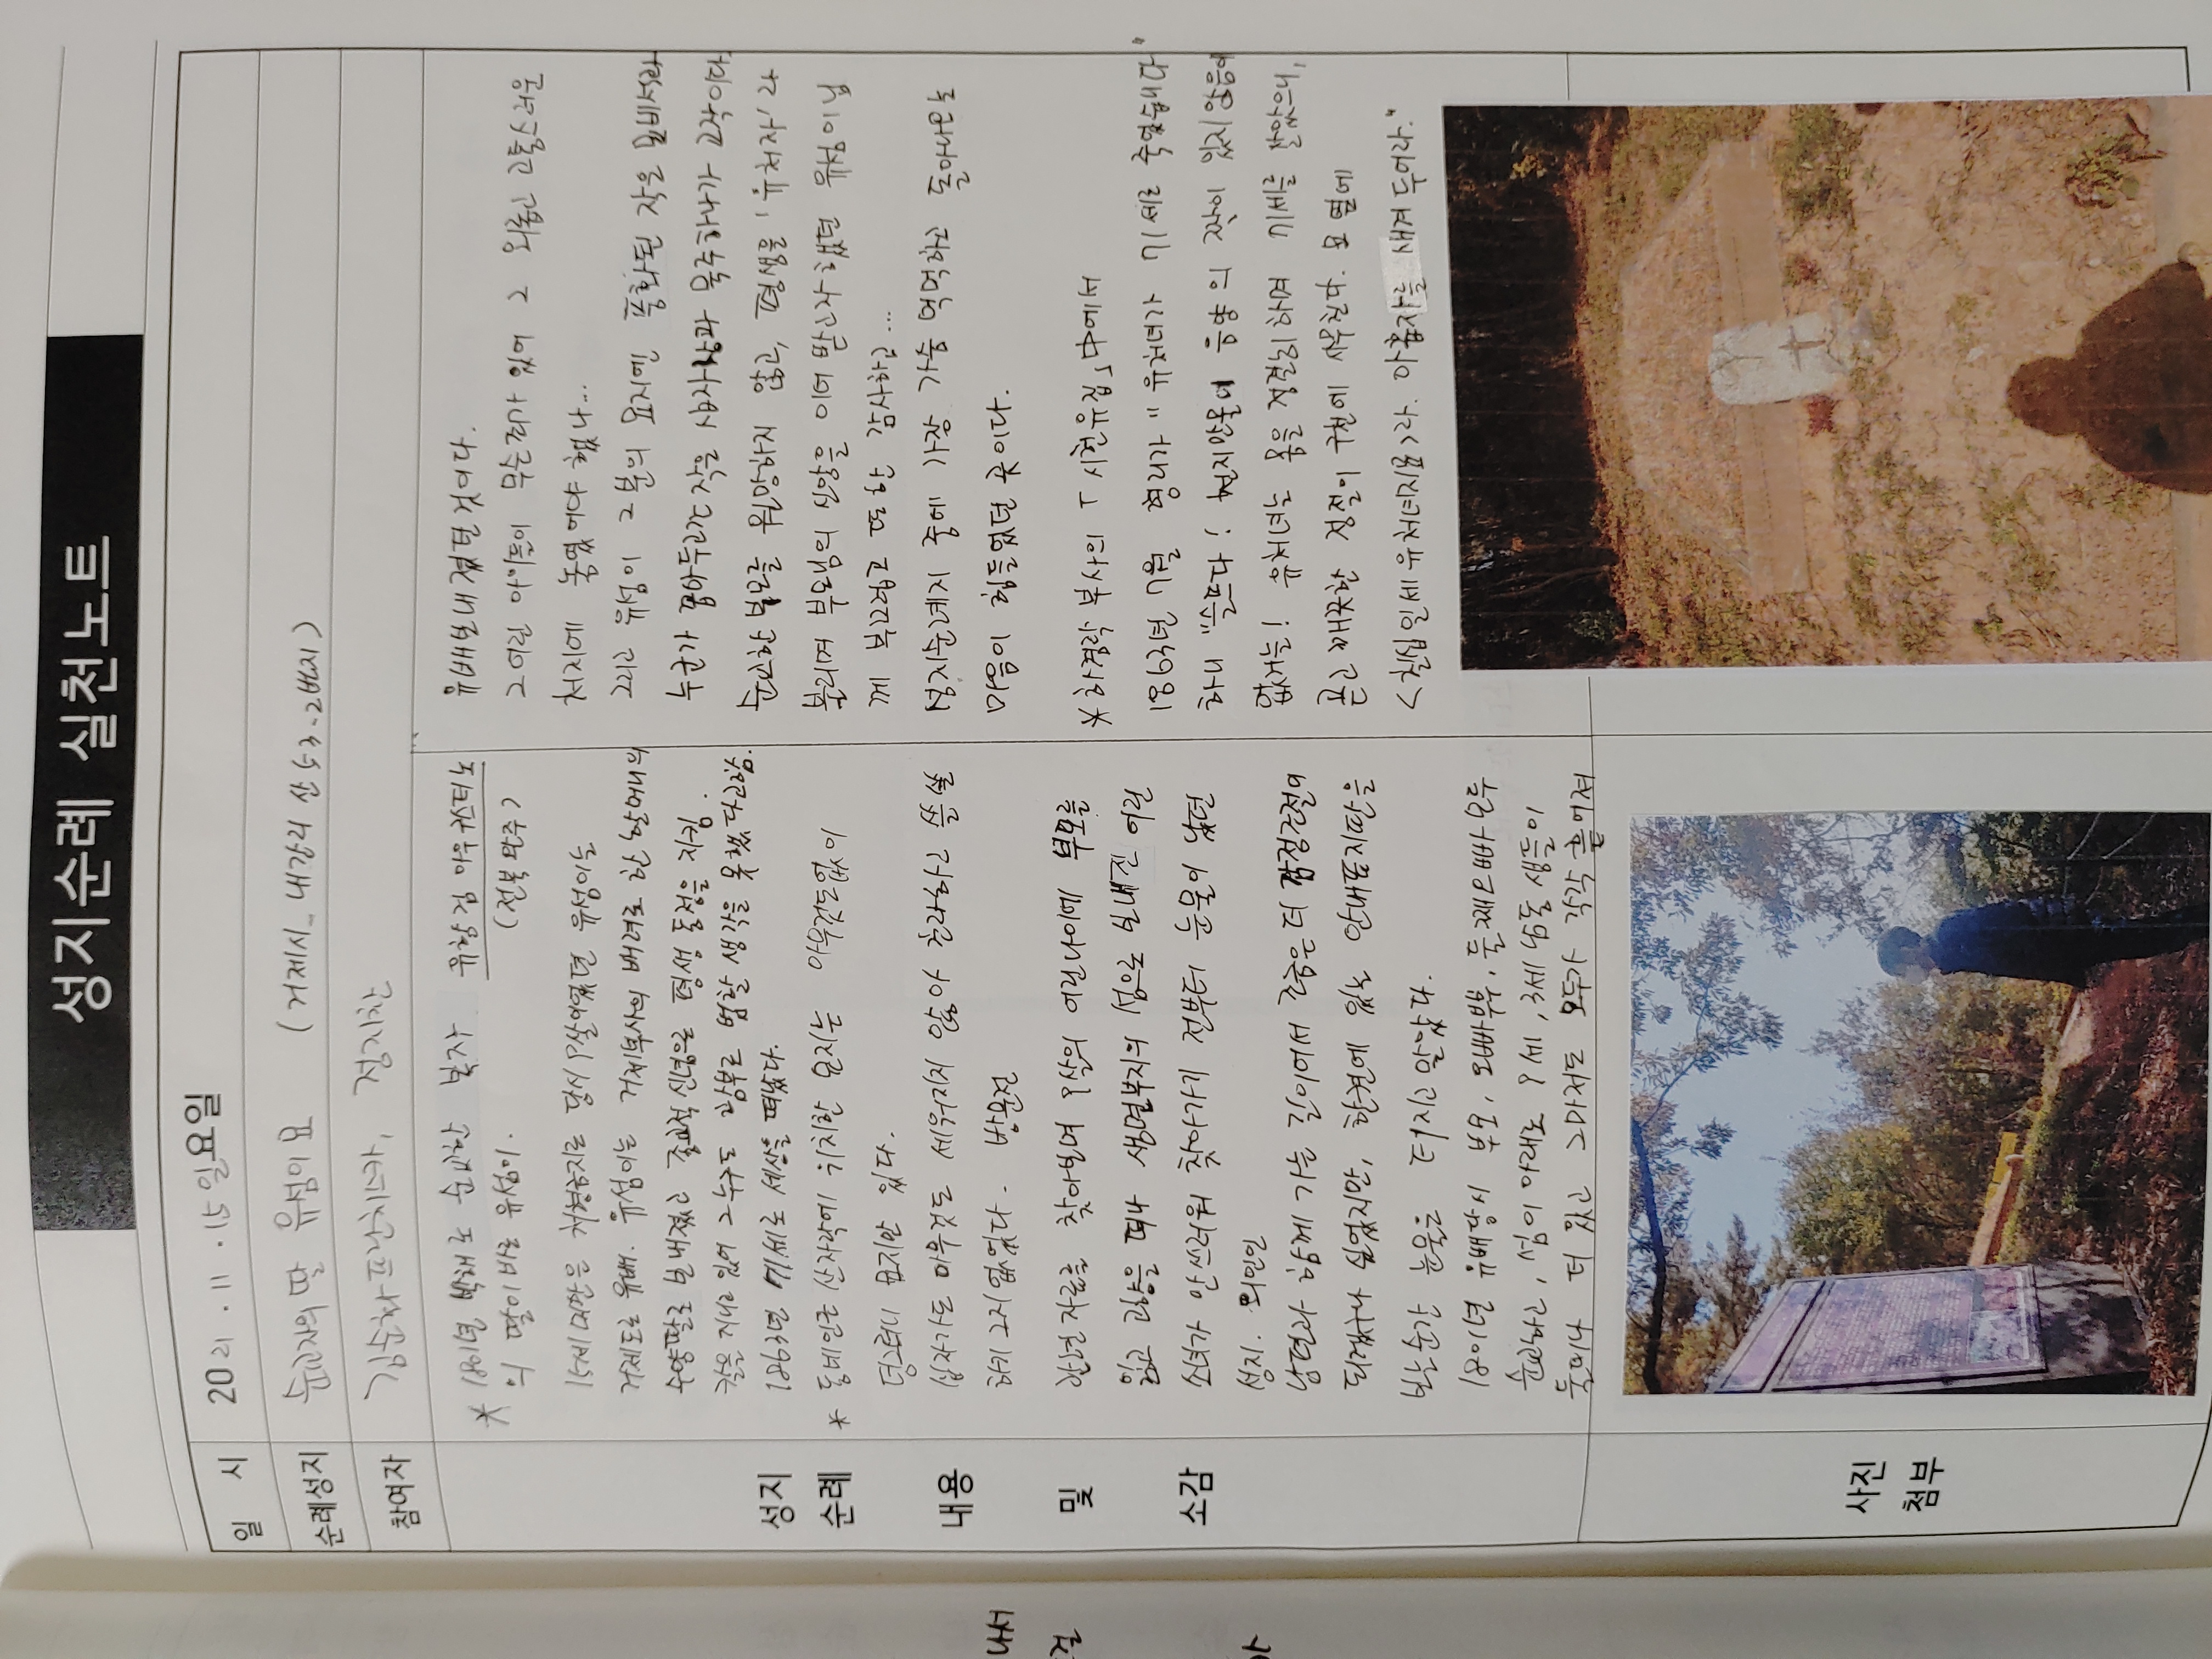 성지순례 실천노트
일 시
2021 . 11 . 15 일요일
순례성지
순교자의 딸 유섬이 묘 (거제시 내간리 산 53-2번지)
참여자
김순화프란치스카, 정지찬
성지
순례
내용
및
소감
* 1801년 박해로 순교한 복자 유항검 아우구스티노
의 딸이 바로 유섬이. (전북 완주)
15세 미만은 처형금지로 당시 9살이었던 유섬이는
거제도로 유배. 유섬이는 거제부사의 배려로 한 할머니의
수양딸로 보내졌고 종교적 신념으로 평생 동정을 지킴.
칼을 지니고 있어 그 누구도 함부로 범할 생각을 못했다고함.
1863년 71세로 세상을 떠났다.
* 동네인근 산자락에 위치한 묘지는 아무것도없이
덩그러니 묘지만 있다.
십자가도 아무것도 세워지지 않아 초라하고 쓸쓸
하기 그지없었다. 방문전
관련자료를 찾아보며 9살의 어린나이에 부모를
잃고 고향을 떠나 생면부지의 섬으로 보내진 어린
소녀가 안쓰러워 찾아가기 전부터 눈물이 났던
성지. 외인인
남편과 함께 가는 길이어서 조금은 더 감정조절이
되겠구나 싶었지만, 한켠에 있는 안내표지판을
보는순간 눈물은 터지고 말았다.
1801년 유배당시 부모, 오빠부부, 둘째오빠 모두
순교하고, 섬이 아래로 9세, 3세 남동생들이
둘이나 더 있고 그마저도 모두가 각각 흩어져
유배보내졌던것이다.
그어린 아이들이 무슨죄가 있어 그 외롭고 고통스러운
처지에 놓였어야 했나...
그리고 유섬이 그분의 묘지엔 풍화된 작은 묘비석과
누군가 꼽아두고간 작은 십자상과 묵주하나가 고작이다.
순교한 부모를 원망하지 않고, 평생을 '유처자'라
불리며 부모님의 신앙을 이어 받고자 했던 유섬이님
께 부끄럽고 또한 감사하고...
성지순례지 중에 가장 가슴 먹먹하고 돌아나오는
마음이 힘들었던 곳이다.
* 하겸락 부사의 「시헌유집」中에서
1863년 7월 형리가 "유처녀가 71세로 죽었습니다"
하니 "슬프다! 천지만물이 음양의 짝이 있지않음이
없거늘! 유처녀는 몸을 정결히하며 71세를 살았으니,
곧고 깨끗한 정절이 구천에 사무친다. 묘 옆에
<칠십일세유처녀지묘>라. 아홉자를 새겨 두어라."
사진
첨부
나서
걸